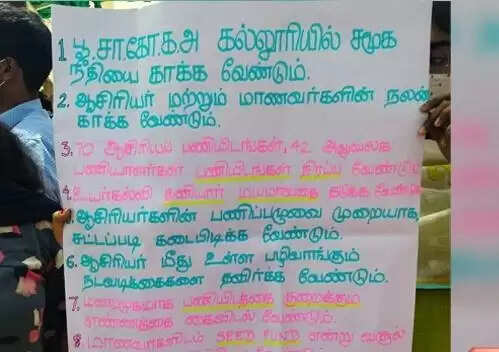 1 பூ.சா.கோ.க.அ கல்லூரியில் சமூக
நீதியை காக்க வேண்டும்.
2. ஆசிரியர் மற்றும் மாணவர்களின் நலன்
காக்க வேண்டும்.
3. 70 ஆசிரியப் பணியிடங்கள், 42 அலுவலக
பணியாளர்கள் பணியிடங்கள் நிரப்ப வேண்டும்
4. உயர்கல்வி தனியார் மயமாவதை தடுக்க வேண்டும்
ஆசிரியர்களின் பணிப்பளுவை முறையாக
சட்டப்படி கடைபிடிக்க வேண்டும்.
6. ஆசிரியர் மீது உள்ள பழிவாங்கும்
நடவடிக்கைகளை தவிர்க்க வேண்டும்.
7. மறைமுகமாக பணியிடத்தை குறைக்கும்
எண்ணத்தை கைவிடல் வேண்டும்.
8. மாணவர்களிடம் SEED FUND என்று வசூல்